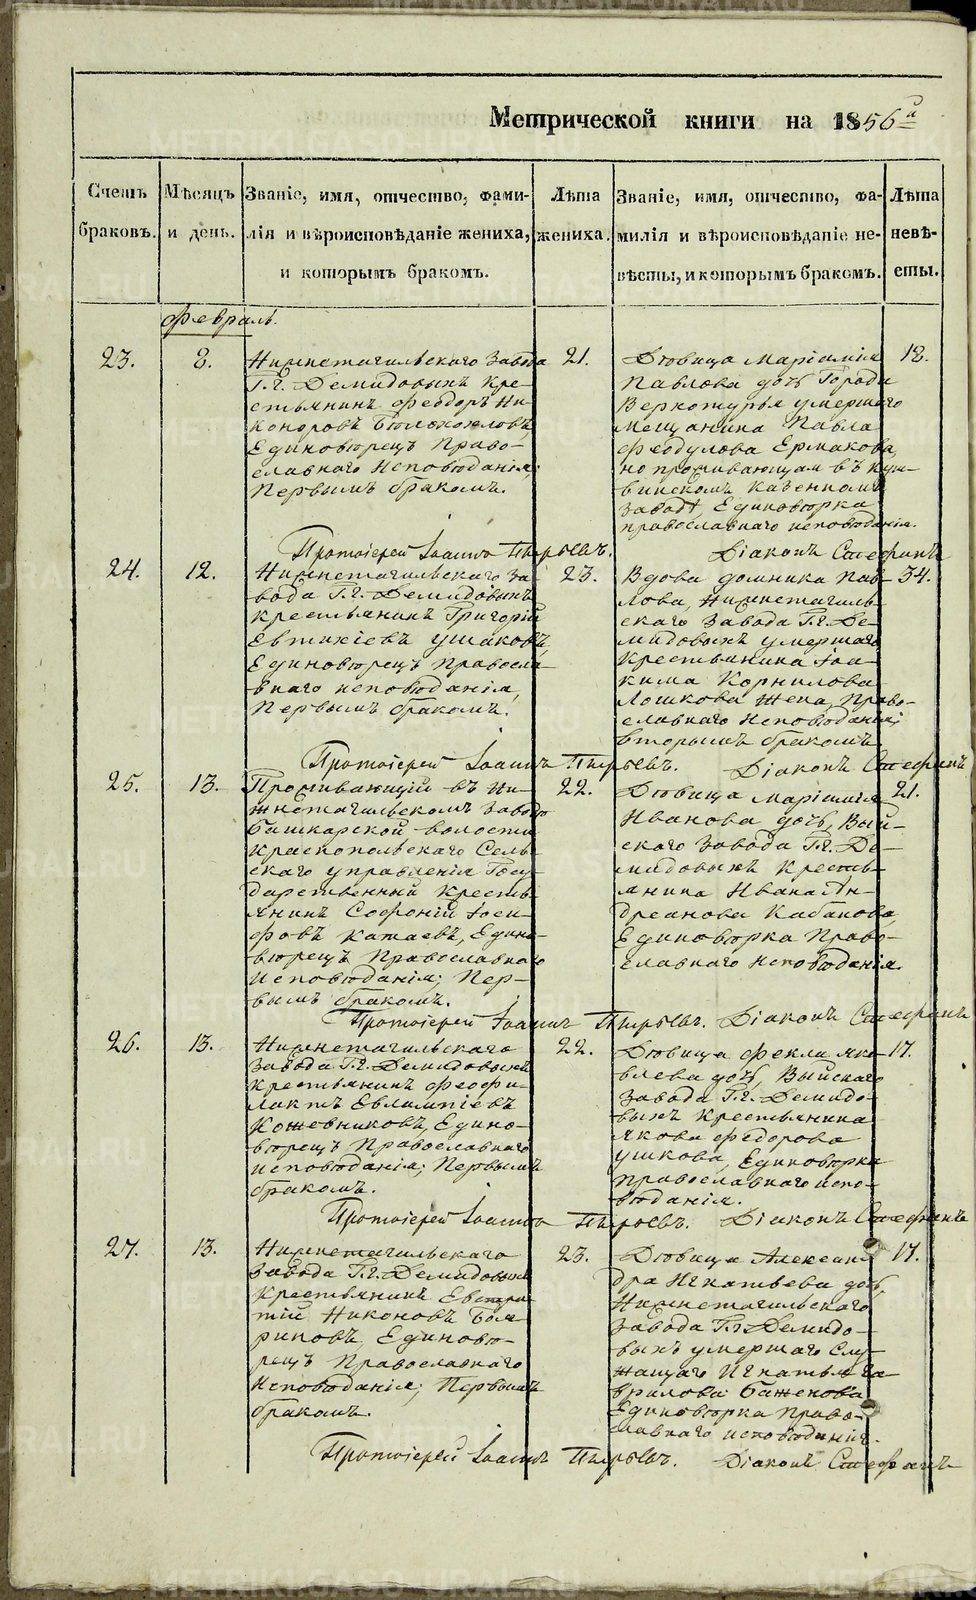 Метрической книги на 1856й
Счетъ
браковъ.
Мѣсяцъ
и день.
Званіе, имя, отчество, фами-
лія и вѣроисповѣданіе жениха,
и которымъ бракомъ.
Лѣта
жениха.
Званіе, имя, отчество, фа-
милія и вѣроисповѣданіе не-
вѣсты, и которымъ бракомъ.
Лѣта
невѣ-
сты.
Февраль.
23.
8.
Нижнетагильскаго завода
Г.г. Демидовыхъ кре-
стьянинъ Феодоръ Ни-
коноровъ
Единовѣрецъ Право-
славнаго Исповѣданія;
Первымъ бракомъ.
21.
Дѣвица Маріамія
Павлова дочь Города
Верхотурья умершаго
мещанина Павла
Феодулова Ермакова,
но проживающая въ Куш-
винскомъ казенномъ
заводѣ, Единовѣрка
православнаго исповѣданія.
18.
Протоіерей Іоаннъ Пырьевъ. Діаконъ Стефанъ
24.
12.
Нижнетагильскаго За-
вода Г.г. Демидовыхъ
крестьянинъ Григорій
Евтихіевъ Ушаковъ,
Единовѣрецъ Правосла-
внаго исповѣданія,
Первымъ бракомъ.
23.
Вдова Домника Пав-
лова, Нижнетагиль-
скаго завода Г.г. Де-
мидовыхъ умершаго
Крестьянина Іоа-
кима Корнилова
Лошкова жена, Право-
славнаго Исповѣданія;
Вторымъ бракомъ.
34.
Протоіерей Іоаннъ Пырьевъ. Діаконъ Стефанъ
25.
13.
Проживающій въ Ни-
жнетагильскомъ заводѣ
Башкарской волости
Краснопольскаго Сель-
скаго управленія Госу-
дарственный Кресть-
янинъ Софоній Іоси-
фовъ Катаевъ, Едино-
вѣрецъ Православнаго
Исповѣданія; Пер-
вымъ бракомъ.
22.
Дѣвица Маріамія
Иванова дочь, Вый-
скаго завода Г.г. Де-
мидовыхъ Кресть-
янина Ивана Ан-
дреанова Кабанова,
Единовѣрка Право-
славнаго Исповѣданія.
21.
Протоіерей Іоаннъ Пырьевъ. Діаконъ Стефанъ
26.
13.
Нижнетагильскаго
завода Г.г. Демидовыхъ
крестьянинъ Феофи-
лактъ Евлампіевъ
Кожевниковъ, Едино-
вѣрецъ Православнаго
исповѣданія; Первымъ
бракомъ.
22.
Дѣвица Фекла Яко-
влева дочь, Выйскаго
завода Г.г. Демидо-
выхъ крестьянина
Якова Федорова
Ушкова, Единовѣрка
православнаго испо-
вѣданія.
17.
Протоіерей Іоаннъ Пырьевъ. Діаконъ Стефанъ
27.
13.
Нижнетагильскаго
завода Г.г. Демидовыхъ
Крестьянинъ Евстра-
тій Никоновъ Боя-
риновъ, Единовѣ-
рецъ Православнаго
Исповѣданія; Первымъ
бракомъ.
23.
Дѣвица Алексан-
дра Игнатьева дочь,
Нижнетагильскаго
завода Г.г. Демидо-
выхъ умершаго Слу-
жащаго Игнатья Га-
врилова Баженова
Единовѣрка право-
славнаго исповѣданія.
17.
Протоіерей Іоаннъ Пырьевъ. Діаконъ Стефанъ